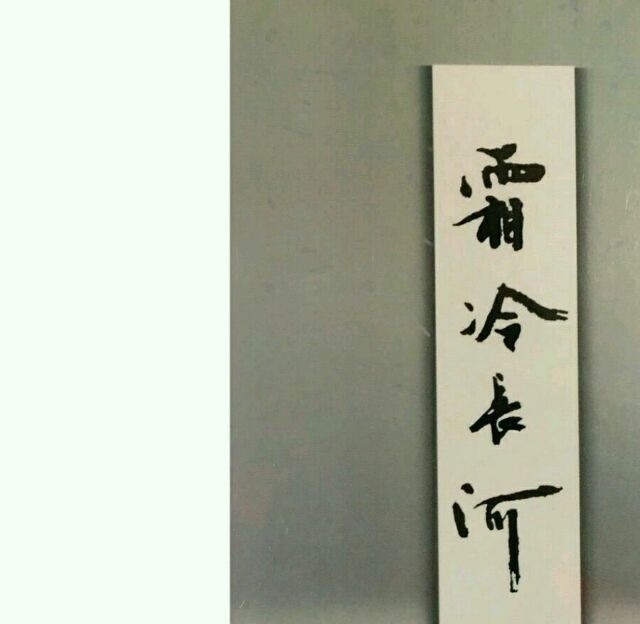 霜冷長河